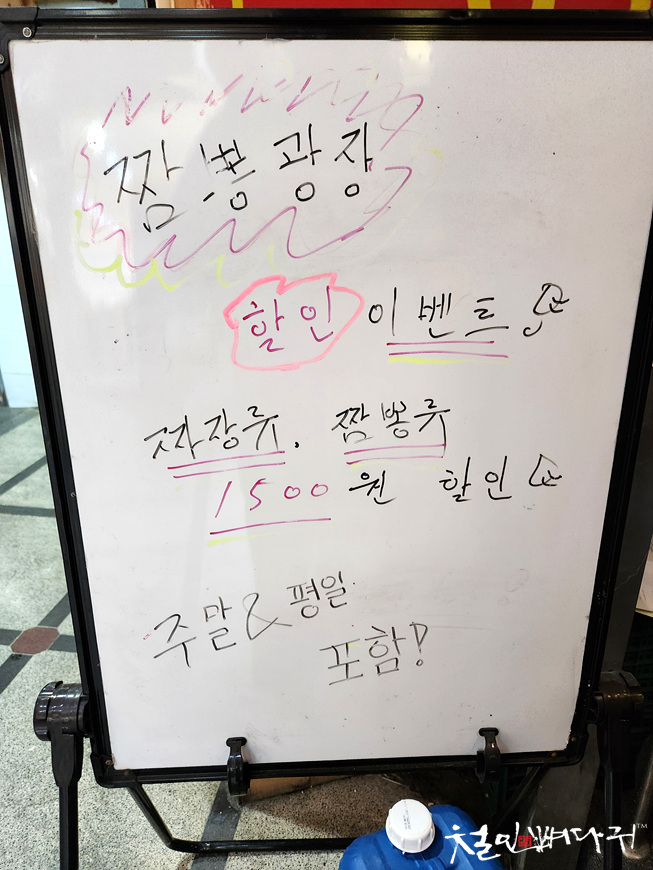 짬뽕광장
할인 이벤트
짜장류. 짬뽕류
1500원 할인
주말 & 평일
포함!
철인뼈다귀™